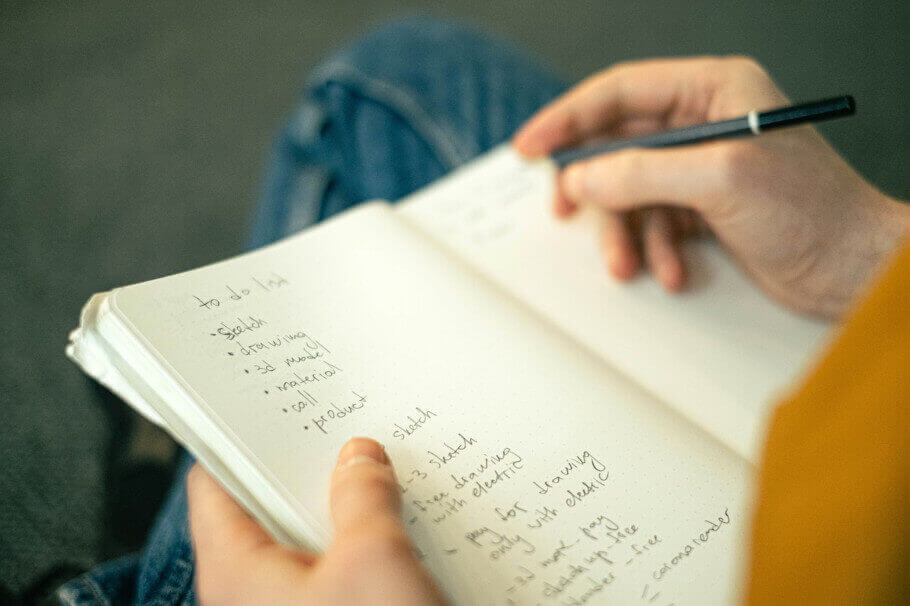 to do list
• sketch
• drawing
• 3d model
• material
• call
• product
sketch
-3 sketch
- free drawing
with electric
- pay for drawing
only with electric
- 3d mork - pay
sketch up - free
- free
- coronarender